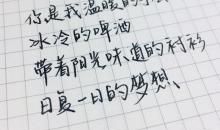 你是我温暖的手
冰冷的啤酒
带着阳光味道的衬衫
日复一日的梦想